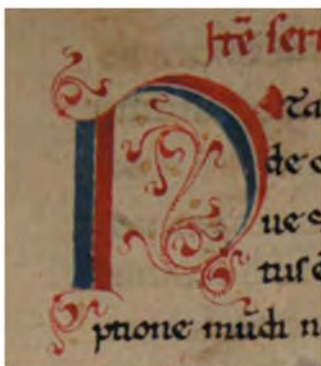 Itē ser
N
de
ue
tuſ ē
ptione mūdi n